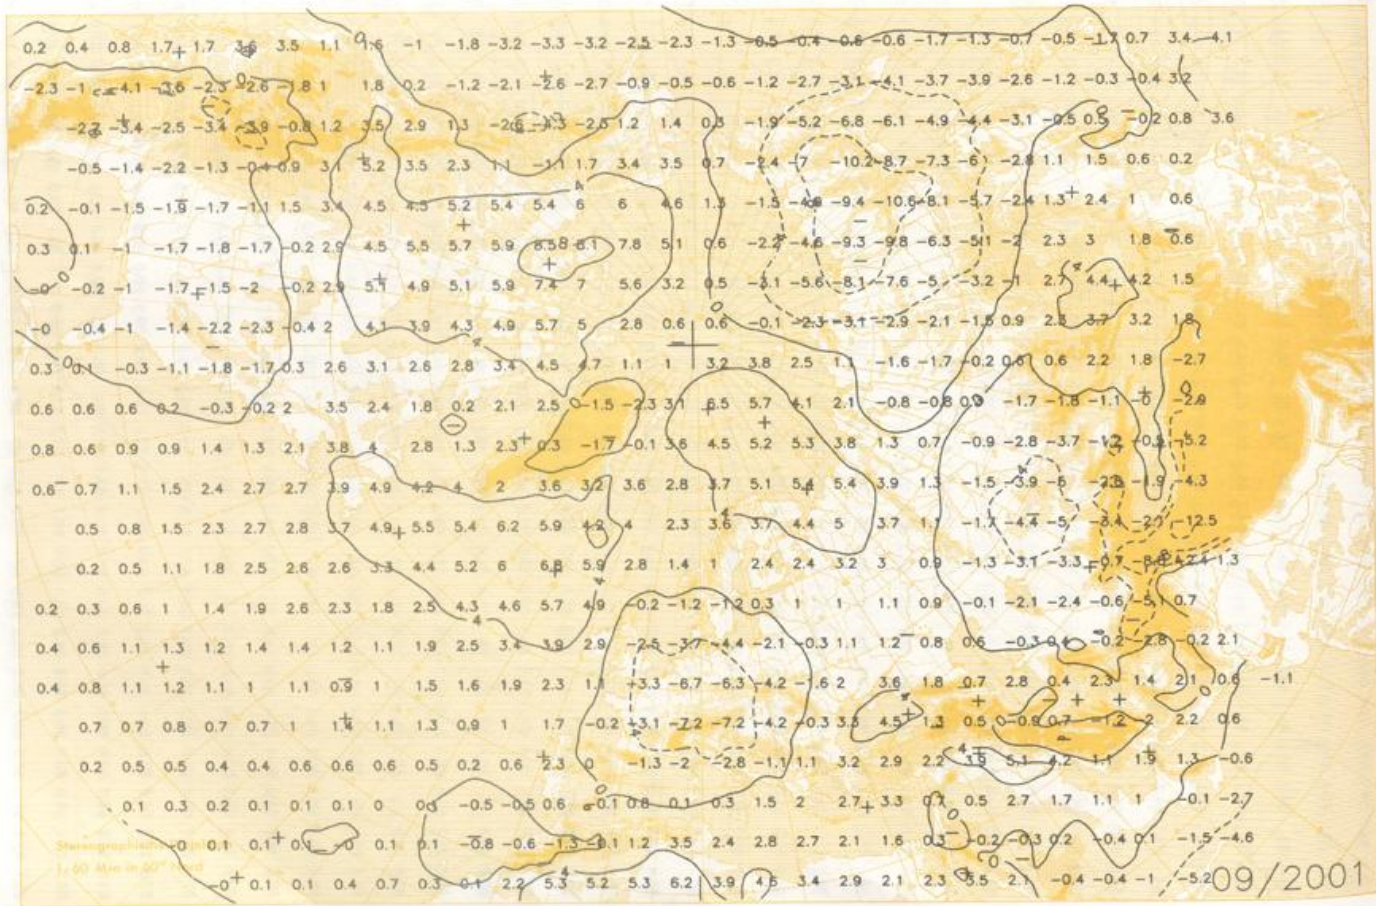 0.2 0.4 0.8 1.7 1.7 3.6 3.5 1.1 1.6 -1 -1.8 -3.2 -3.3 -3.2 -2.5 -2.3 -1.3 -0.5 -0.4 -0.8 -0.6 -1.7 -1.3 -0.7 -0.5 -1.7 0.7 3.4 4.1
-2.3 -1 -4.1 -3.6 -2.3 -2.6 -1.8 1 1.8 0.2 -1.2 -2.1 -2.6 -2.7 -0.9 -0.5 -0.6 -1.2 -2.7 -3.1 -4.1 -3.7 -3.9 -2.6 -1.2 -0.3 -0.4 3.2
-3.4 -2.5 -3.4 -3.9 -0.8 1.2 3.5 2.9 1.3 1.2 1.4 0.3 -1.9 -5.2 -6.8 -6.1 -4.9 -4.4 -3.1 -0.5 0.5 -0.2 0.8 3.6
-0.5 -1.4 -2.2 -1.3 -0.4 0.9 3.1 5.2 3.5 2.3 1.1 -1.1 1.7 3.4 3.5 0.7 -2.4 -7 -10.2 -8.7 -7.3 -6 -2.8 1.1 1.5 0.6 0.2
0.2 -0.1 -1.5 -1.9 -1.7 -1.1 1.5 3.4 4.5 4.5 5.2 5.4 5.4 6 6 4.6 1.3 -1.5 -9.4 -10.6 -8.1 -5.7 -2.4 1.3 2.4 1 0.6
0.3 0.1 -1 -1.7 -1.8 -1.7 -0.2 2.9 4.5 5.5 5.7 5.9 8.1 7.8 5.1 0.6 -2.2 -4.6 -9.3 -9.8 -6.3 -5.1 -2 2.3 3 1.8 0.6
-0 -0.2 -1 -1.7 -1.5 -2 -0.2 2.9 5.1 4.9 5.1 5.9 7.4 7 5.6 3.2 0.5 -3.1 -5.6 -8.1 -7.6 -5 -3.2 -1 2.7 4.4 4.2 1.5
-0 -0.4 -1 -1.4 -2.2 -2.3 -0.4 2 4.1 3.9 4.3 4.9 5.7 5 2.8 0.6 0.6 -0.1 -2.3 -3.1 -2.9 -2.1 -1.5 0.9 2.3 3.7 3.2 1.8
0.3 0.1 -0.3 -1.1 -1.8 -1.7 0.3 2.6 3.1 2.6 2.8 3.4 4.5 4.7 1.1 1 3.2 3.8 2.5 1.1 -1.6 -1.7 -0.2 0.6 0.6 2.2 1.8 -2.7
0.6 0.6 0.6 0.2 -0.3 -0.2 2 3.5 2.4 1.8 0.2 2.1 2.5 -1.5 -2.3 3.1 6.5 5.7 4.1 2.1 -0.8 -0.8 0.3 -1.7 -1.8 -1.1 -0 -2.9
0.8 0.6 0.9 0.9 1.4 1.3 2.1 3.8 4 2.8 1.3 2.3 0.3 -1.7 -0.1 3.6 4.5 5.2 5.3 3.8 1.3 0.7 -0.9 -2.8 -3.7 -1.2 -0.5 -5.2
0.6 0.7 1.1 1.5 2.4 2.7 2.7 3.9 4.9 4.2 4 2 3.6 3.2 3.6 2.8 3.7 5.1 5.4 5.4 3.9 1.3 -1.5 -3.9 -5 -2.8 -1.9 -4.3
0.5 0.8 1.5 2.3 2.7 2.8 3.7 4.9 5.5 5.4 6.2 5.9 4.2 4 2.3 3.6 3.7 4.4 5 3.7 1.1 -1.7 -4.4 -5 -3.4 -12.5
0.2 0.5 1.1 1.8 2.5 2.6 2.6 3.3 4.4 5.2 6 6.8 5.9 2.8 1.4 1 2.4 2.4 3.2 3 0.9 -1.3 -3.1 -3.3 -0.7 1.3
0.2 0.3 0.6 1 1.4 1.9 2.6 2.3 1.8 2.5 4.3 4.6 5.7 4.9 -0.2 -1.2 -1.2 0.3 1 1 1.1 0.9 -0.1 -2.1 -2.4 -0.6 -5.1 0.7
0.4 0.6 1.1 1.3 1.2 1.4 1.4 1.2 1.1 1.9 2.5 3.4 3.9 2.9 -2.5 -3.7 -4.4 -2.1 -0.3 1.1 1.2 0.8 0.6 -0.3 0.4 -0.2 -2.8 -0.2 2.1
0.4 0.8 1.1 1.2 1.1 1 1.1 0.9 1 1.5 1.6 1.9 2.3 1.1 -3.3 -6.7 -6.3 -4.2 -1.6 2 3.6 1.8 0.7 2.8 0.4 2.3 1.4 2.1 0.6 -1.1
0.7 0.7 0.8 0.7 0.7 1 1.4 1.1 1.3 0.9 1 1.7 -0.2 -3.1 -7.2 -7.2 -4.2 -0.3 3.3 4.5 1.3 0.5 -0.9 0.7 -1.2 2 2.2 0.6
0.2 0.5 0.5 0.4 0.4 0.6 0.6 0.6 0.5 0.2 0.6 2.3 0 -1.3 -2 -2.8 -1.1 1.1 3.2 2.9 2.2 3.9 5.1 4.2 1.1 1.9 1.3 -0.6
0.1 0.3 0.2 0.1 0.1 0.1 0 0.3 -0.5 -0.5 0.6 -0.1 0.8 0.1 0.3 1.5 2 2.7 3.3 0.7 0.5 2.7 1.7 1.1 1 -0.1 -2.7
-0 0.1 0.1 0.1 -0 0.1 0.1 -0.8 -0.6 -1.3 -0.1 1.2 3.5 2.4 2.8 2.7 2.1 1.6 0.3 -0.2 -0.3 0.2 -0.4 0.1 -1.5 -4.6
-0 0.1 0.1 0.4 0.7 0.3 0.1 2.2 5.3 5.2 5.3 6.2 3.9 4.6 3.4 2.9 2.1 2.3 3.5 2.1 -0.4 -0.4 -1 -5.2
09/2001